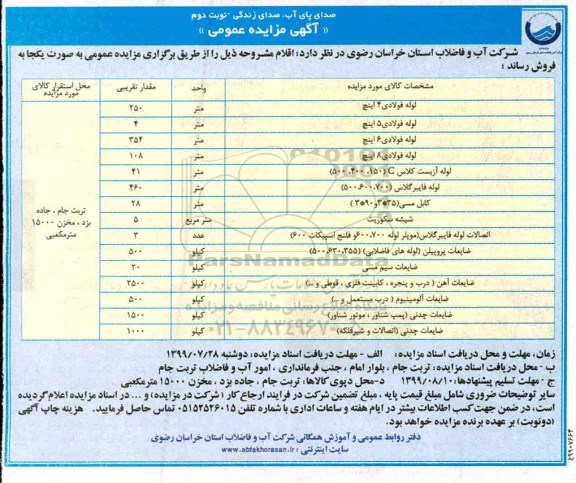 صدای پای آب، صدای زندگی - نوبت دوم
« آگهی مزایده عمومی »
شرکت آب و فاضلاب استان خراسان رضوی در نظر دارد: اقلام مشروحه ذیل را از طریق برگزاری مزایده عمومی به صورت یکجا به
فروش رساند :
مشخصات کالای مورد مزایده واحد مقدار تقریبی محل استقرار کالای مورد مزایده
لوله فولادی ۴ اینچ متر ۲۵۰
لوله فولادی ۵ اینچ متر ۴
لوله فولادی ۶ اینچ متر ۳۵۴
لوله فولادی ۸ اینچ متر ۱۰۸
لوله آزبست کلاس C (۱۵۰، ۴۰۰، ۵۰۰) متر ۴۱
لوله فایبرگلاس (۵۰۰،۶۰۰،۷۰۰) متر ۴۶۰
کابل مسی (۳۵*۳و۹۰*۳) متر ۲۸
شیشه سکوریت متر مربع ۵
اتصالات لوله فایبرگلاس(موپلر لوله ۶۰۰،۷۰۰ و فلنج اسپیگات ۶۰۰) عدد ۳
ضایعات پروپیلن (لوله های فاضلابی) (۵۰۰،۶۳۰،۳۵۵) کیلو ۵۰۰
ضایعات سیم مسی کیلو ۲۰
ضایعات آهن ( درب و پنجره ، کابینت فلزی ، قوطی و ...) کیلو ۲۵۰۰
ضایعات آلومینیوم ( درب مستعمل و ...) کیلو ۵۰۰
ضایعات چدنی (پمپ شناور ، موتور شناور) کیلو ۱۵۰۰
ضایعات چدنی (اتصالات و شیرفلکه) کیلو ۱۰۰۰
تربت جام ، جاده
یزد ، مخزن ۱۵۰۰۰
مترمکعبی
ParsNamadData
۰۲۱-۸۸۳۴۹۶۷۰
زمان، مهلت و محل دریافت اسناد مزایده: الف - مهلت دریافت اسناد مزایده: دوشنبه ۱۳۹۹/۰۷/۲۸
ب - محل دریافت اسناد مزایده: تربت جام ، بلوار امام ، جنب فرمانداری ، امور آب و فاضلاب تربت جام
ج - مهلت تسلیم پیشنهادها: ۱۳۹۹/۰۸/۱۰ د-محل دپوی کالاها: تربت جام ، جاده یزد ، مخزن ۱۵۰۰۰ مترمکعبی
سایر توضیحات ضروری شامل مبلغ قیمت پایه ، مبلغ تضمین شرکت در فرایند ارجاع کار ( شرکت در مزایده) و ... در اسناد مزایده اعلام گردیده
است، در ضمن جهت کسب اطلاعات بیشتر در ایام هفته و ساعات اداری با شماره تلفن ۰۵۱۵۲۵۲۶۰۱۵ تماس حاصل فرمایید. هزینه چاپ آگهی
(دونوبت) بر عهده برنده مزایده خواهد بود.
دفتر روابط عمومی و آموزش همگانی شرکت آب و فاضلاب استان خراسان رضوی
سایت اینترنتی : www.abfakhorasan.ir